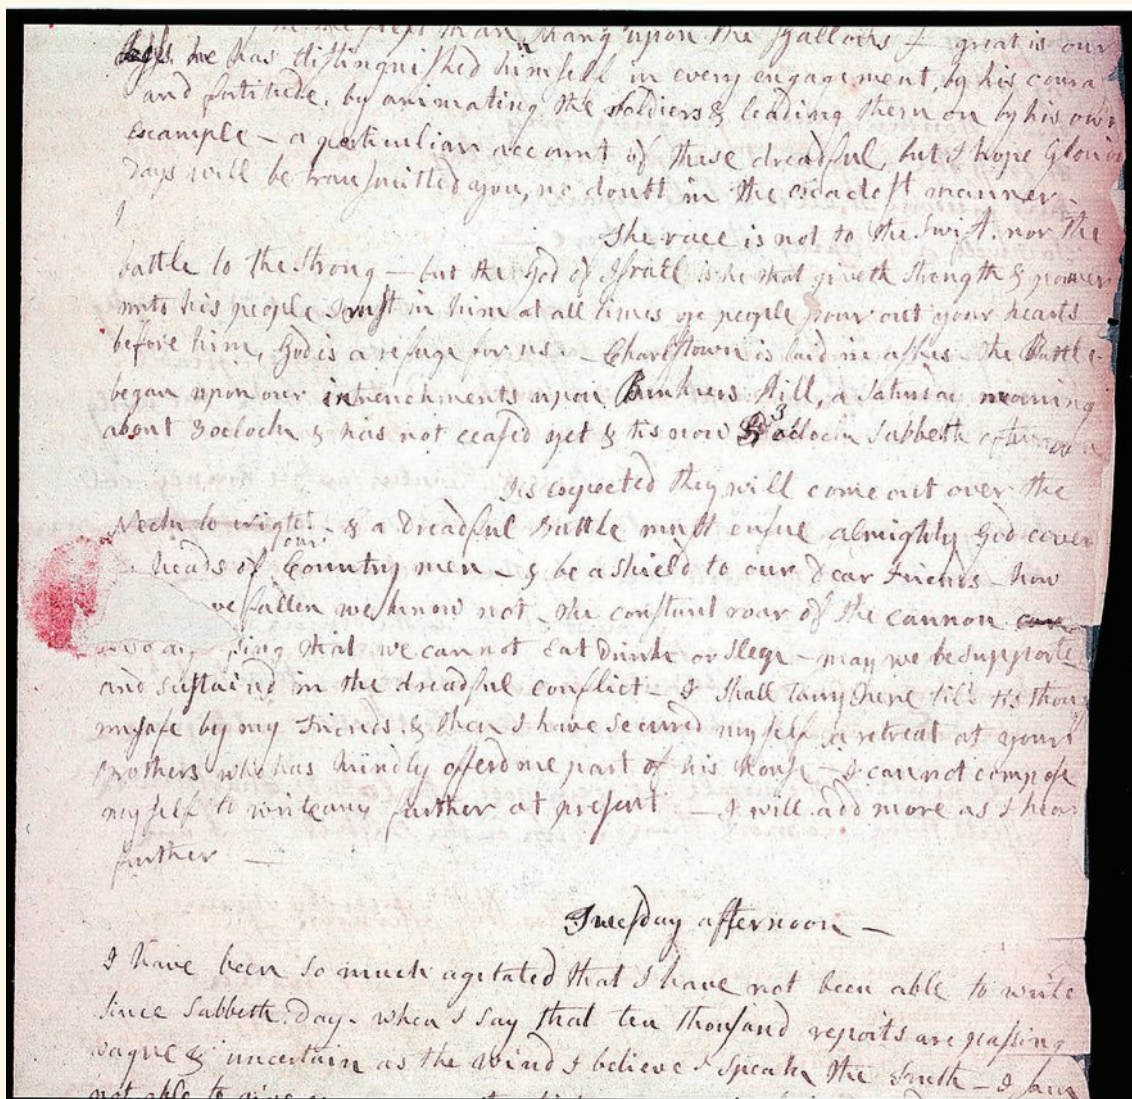 than hang upon the Gallows — great is our
Loss. he has distinguished himself in every engagement, by his coura
and fortitude, by animating the soldiers & leading them on by his own
example — a particuliar account of these dreadful, but I hope Glorio
Days will be transmitted you, no doubt in the exactest manner.
The race is not to the Swift, nor the
battle to the Strong — but the God of Israel is he that giveth Strength & power
unto his people Trust in him at all times ye people pour out your hearts
before him, God is a refuge for us — Charlstown is laid in ashes. the Battle
began upon our intrenchments upon Bunkers Hill, a Saturday morning
about 3 oclock & has not ceased yet & tis now 3 oclock Sabbeth afternoon
Tis expected they will come out over the
Neck to night — & a Dreadful Battle must ensue almighty God cover
heads of our Country men — & be a Shield to our Dear Friends — how
ve fallen we know not — the constant roar of the cannon
sing that we cannot Eat Drink or Sleep — may we be supporte
and sustaind in the dreadful conflict — I shall tarry here till tis thou
unsafe by my Friends & then I have secured myself a retreat at your
Brothers who has kindly offerd me part of his House — I cannot compose
myself to write any further at present — I will add more as I hear
further —
Tuesday afternoon —
I have been so much agitated that I have not been able to write
since Sabbeth Day — when I say that ten thousand reports are passing
vague & uncertain as the wind I believe I Speak the Truth — I am
not able to give